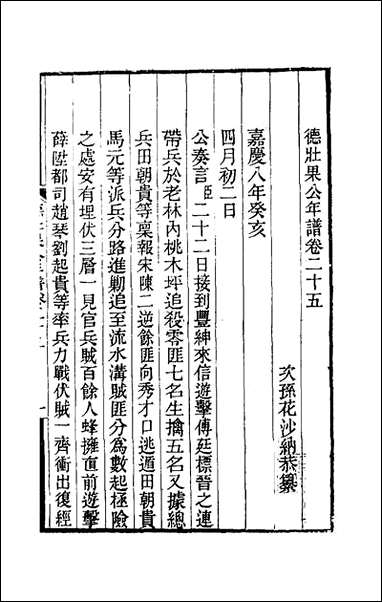 德壯果公年譜卷二十五
次孫花沙納恭纂
嘉慶八年癸亥
四月初二日
公奏言臣二十二日接到豐紳來信遊擊傅廷標晉之連
帶兵於老林內桃木坪追殺零匪七名生擒五名又據總
兵田朝貴等稟報宋陳二逆餘匪向秀才口逃遁田朝貴
馬元等派兵分路進勦追至流水溝賊匪分為數起極險
之處安有埋伏三層一見官兵賊百餘人蜂擁直前遊擊
薛陞都司趙琴劉起貴等率兵力戰伏賊一齊衝出復經